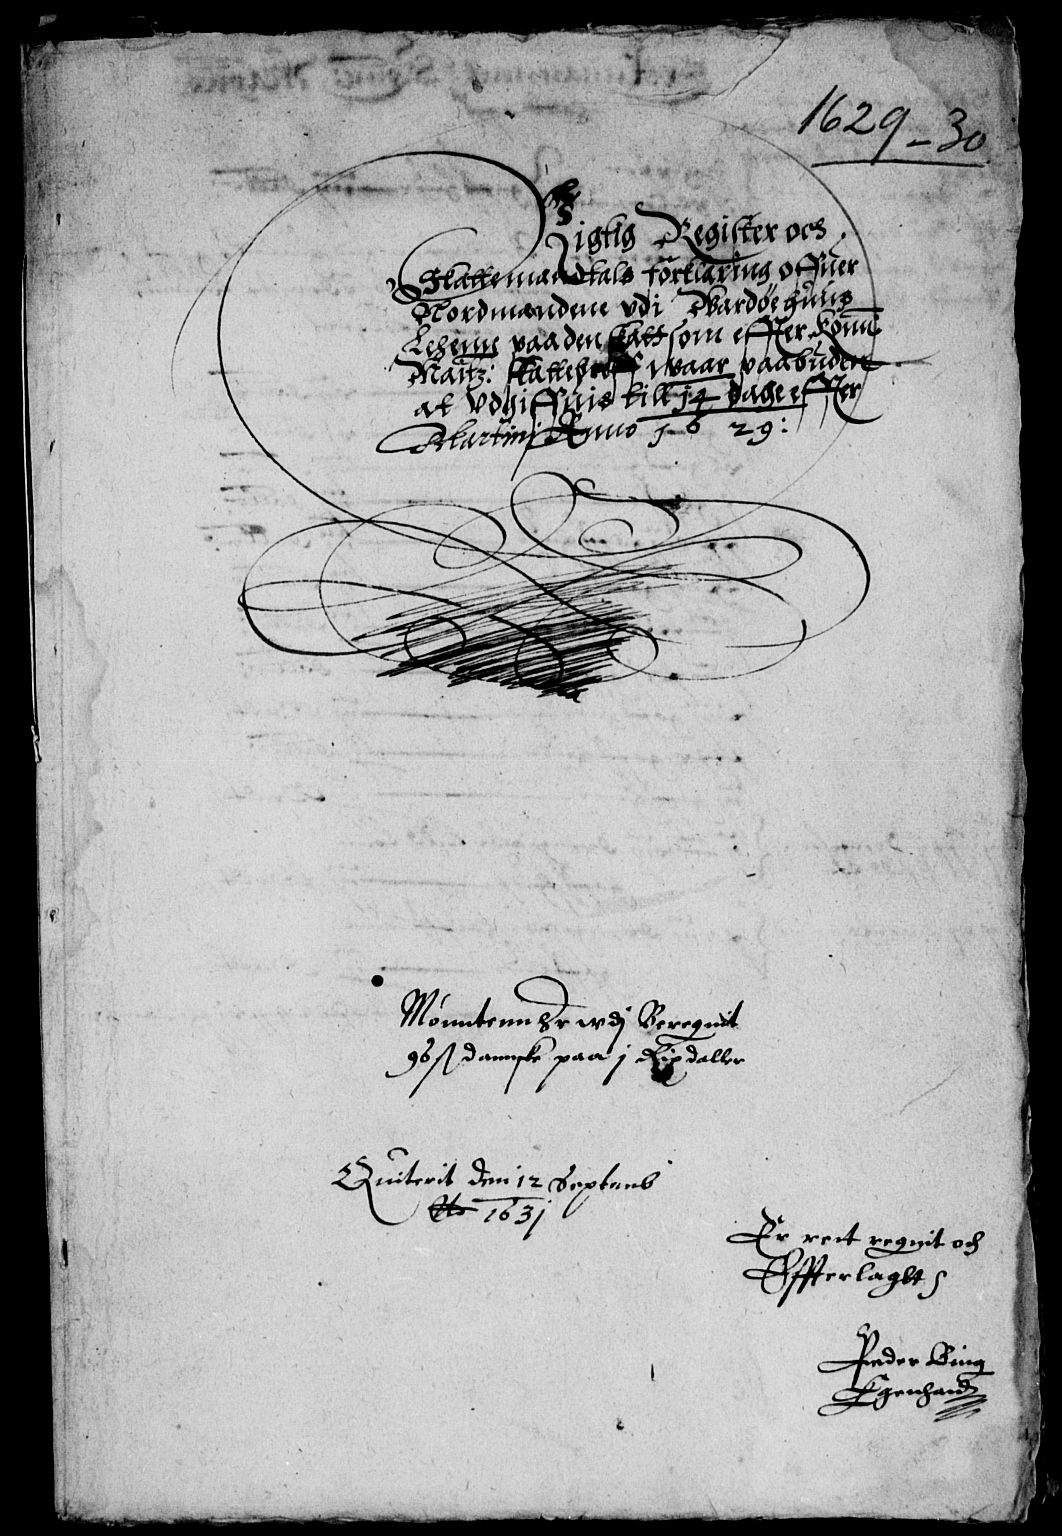 1629-30
Rigtig Register och
Skattemandtals forklaring offuer
Nordmandene vdi Wardøehuus
Lehenne paa den skatt som effter Konn:
Maitz: skattebreff waar paabuden
at vdgiffuis till 14 dage effter
Martinj Anno 1629:
Mønntenn Er wdj Beregnit
96 ß dannske paa j Rixdaller
Quiterit den 12 Septemb
Ao 1631
Er rett regnit och
Effterlagtt
Peder Bing
Egenhand